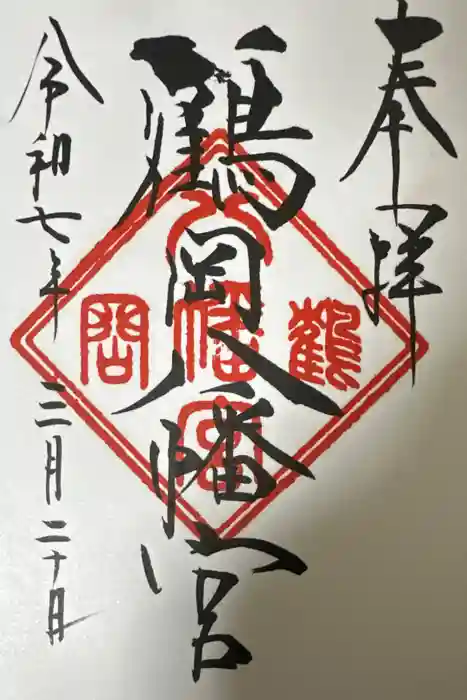 奉拝
鶴岡八幡宮
令和七年三月二十日
鶴
八幡宮
岡